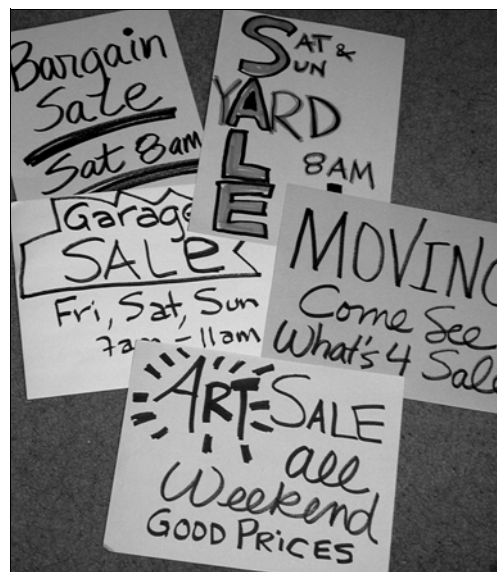 Bargain
Sale
Sat 8am
SAT &
SUN
YARD
SALE
8AM
Garage
SALE
Fri, Sat, Sun
7am - 11am
MOVING
Come See
What's 4 Sale
ART SALE
all
Weekend
GOOD PRICES